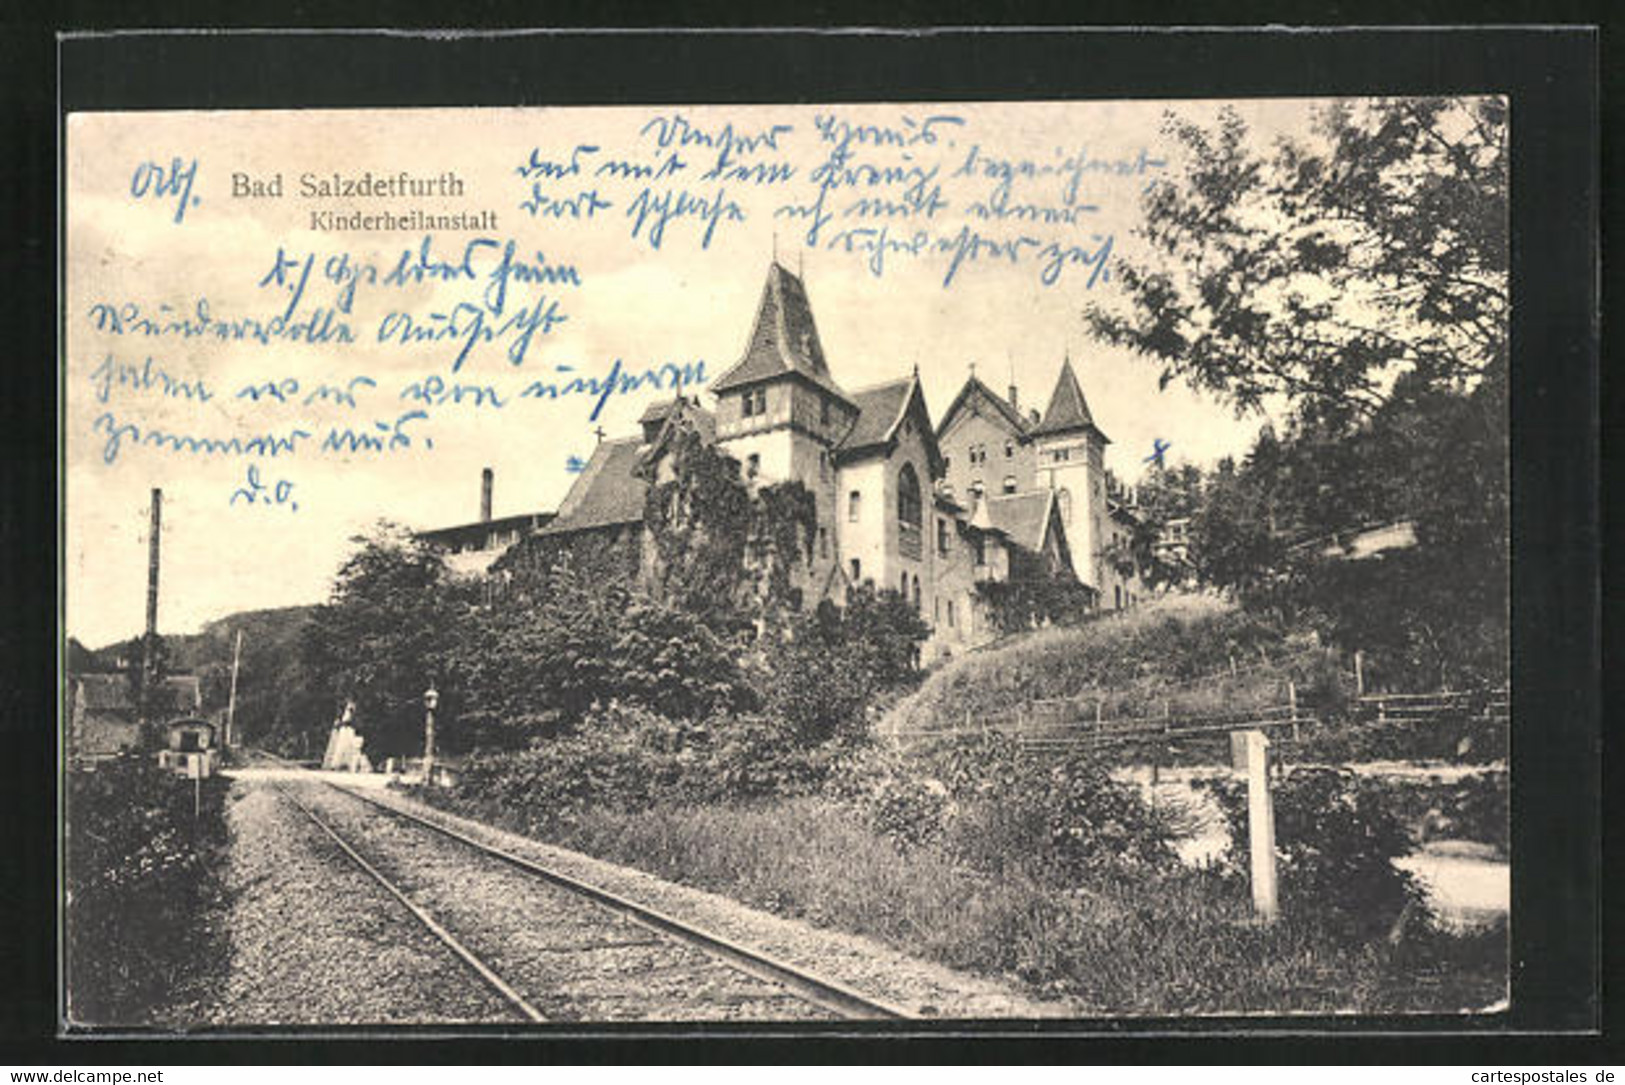 Unser Haus.
das mit dem Kreuz bezeichnet,
dort schlafe ich mit einer
Schwester zus.
Abs. Bad Salzdetfurth
Kinderheilanstalt
b./ Hildesheim
Wundervolle Aussicht
haben wir von unserem
Zimmer aus.
D.O.
www.delcampe.net
cartespostales de